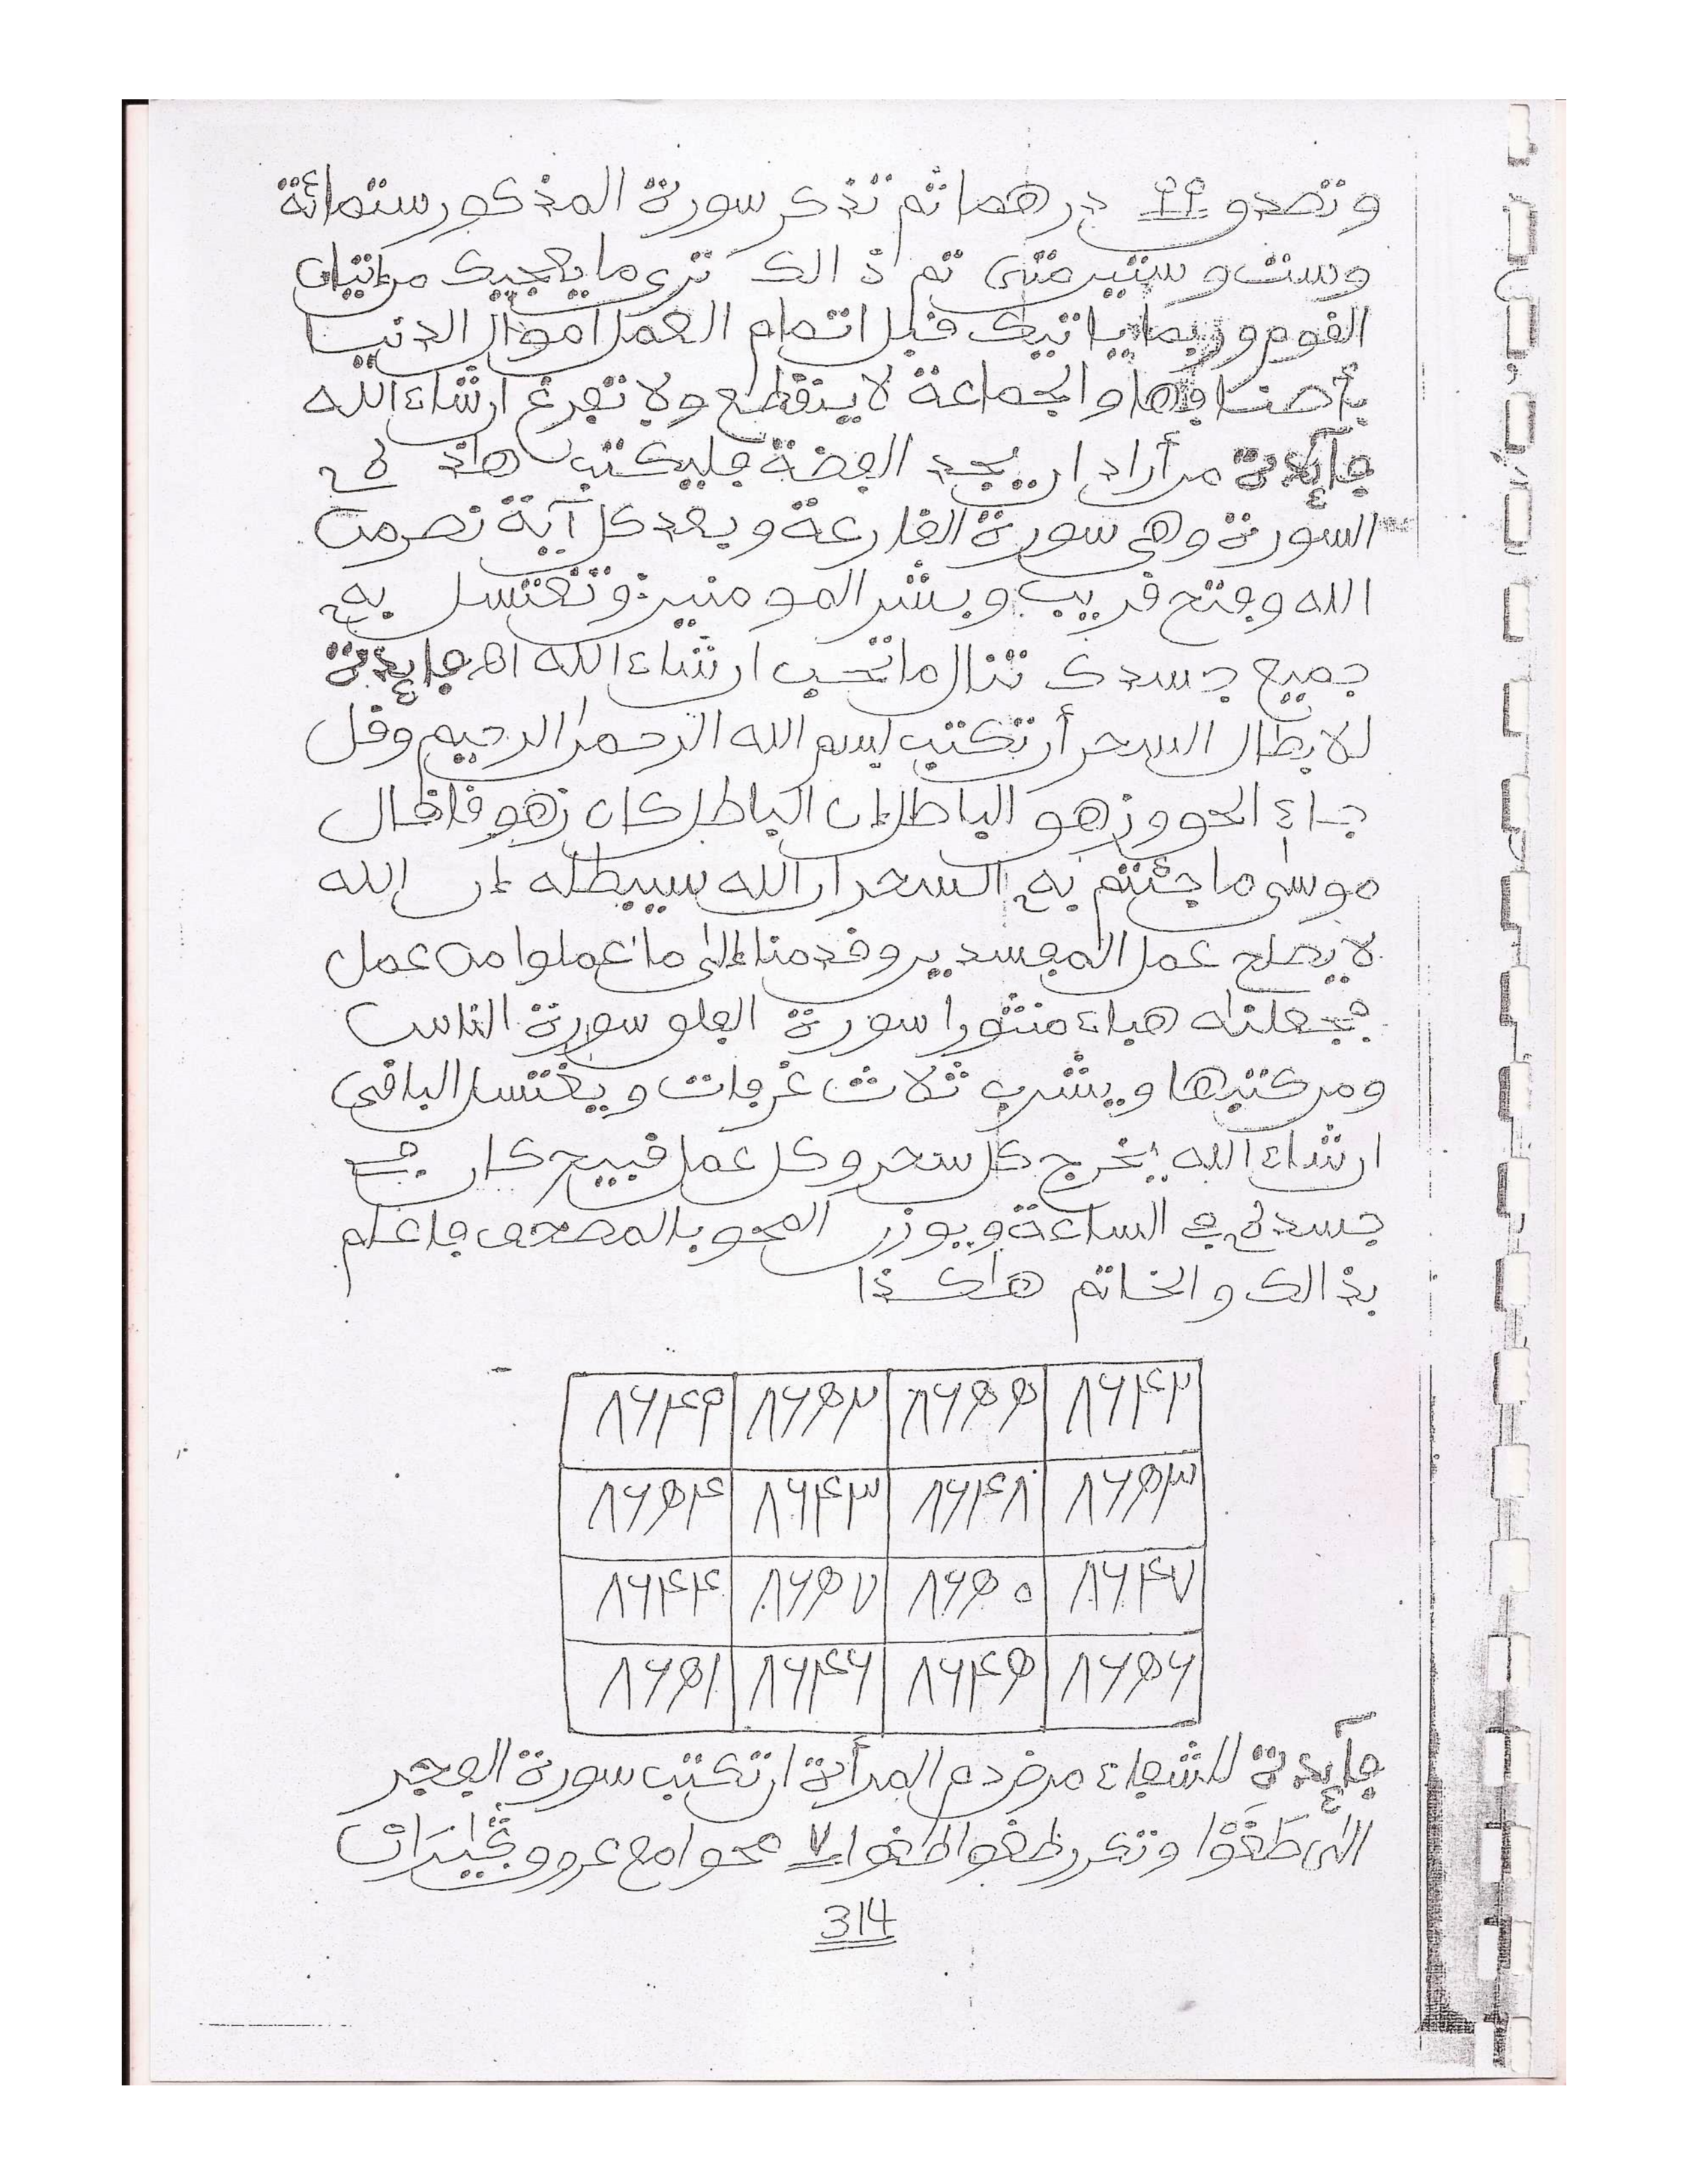 وتصدق ٤٤ درهما ثم تذكر سورة المذكور ستمائة
وست وستين مرة ثم ذالك ترى ما يعجبك من إتيان
القوم وربما ياتيك قبل اتمام العمل أموال الدنيا
بأصنافها والجماعة لا ينقطع ولا تفرغ ان شاء الله
فآئدة من أراد ان يجد الفضة فليكتب هذه
السورة وهي سورة القارعة وبعد كل آية نصر من
الله وفتح قريب وبشر المومنين وتغتسل به
جميع جسدك تنال ما تحب ان شاء الله اه فايدة
لابطال السحر أن تكتب بسم الله الرحمن الرحيم وقل
جاء الحق وزهق الباطل إن الباطل كان زهوقا قال
موسى ما جئتم به السحر ان الله سيبطله إن الله
لا يصلح عمل المفسدين وقدمنا إلى ما عملوا من عمل
فجعلنه هباء منثورا سورة الفلق سورة الناس
ومن كتبها ويشرب ثلاث غرفات ويغتسل الباقى
ان شاء الله يخرج كل سحر وكل عمل قبيح كان في
جسده في الساعة ويوزن المحو بالمصحف فاعلم
بذالك والخاتم هاكذا
٨٦٤٢ ٨٦٥٥ ٨٦٥٢ ٨٦٤٩
٨٦٥٣ ٨٦٤٨ ٨٦٤٣ ٨٦٥٤
٨٦٤٧ ٨٦٥٠ ٨٦٥٧ ٨٦٤٤
٨٦٥٦ ٨٦٤٥ ٨٦٤٦ ٨٦٥١
فآيدة للشفاء من ضر دم المرأة ان تكتب سورة الفجر
الى طَغَوْا وتكرر طغوا طغوا ٧ محوا مع عروق
314